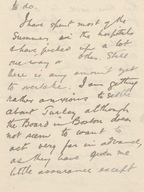 to do.
I have spent most of the
Summer in the hospitals
have picked up a lot
one way or other. Still
here is any amount yet
to overtake. I am getting
rather anxious to settle
about Turkey although
the Board in Boston does
not seem to want to
act very far in advance,
as they have given me
little assurance except